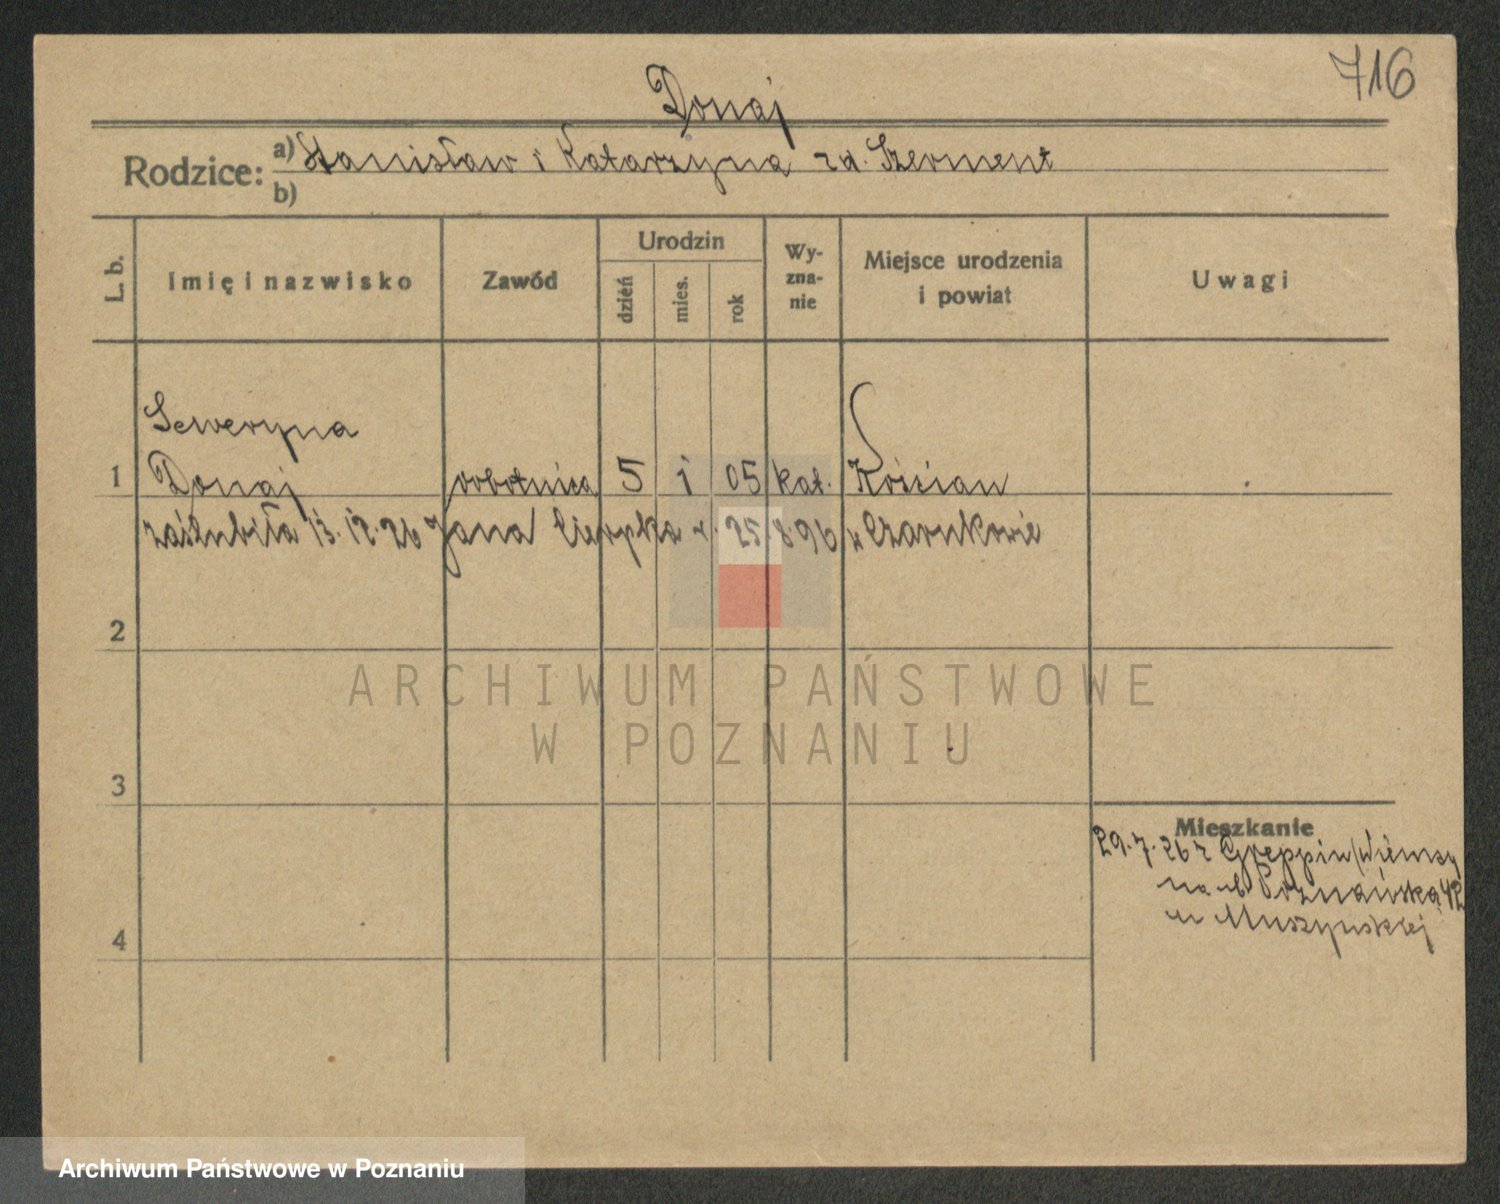 716
Donaj
Rodzice: a) Stanisław i Katarzyna zd. Szerment
b)
L. b.
Imię i nazwisko
Zawód
Urodzin
dzień
mies.
rok
Wy-
zna-
nie
Miejsce urodzenia
i powiat
Uwagi
Seweryna
1 Donaj robotnica 5 i 05 kat. Kościan
zaślubiła 13.12.26 Jana Cierpka u. 25.8.96 w Czarnkowie
2
ARCHIWUM PAŃSTWOWE
W POZNANIU
3
Mieszkanie
29.7.26 z Greppin
na ul. Poznańską 42
u Muszyńskiej
4
Archiwum Państwowe w Poznaniu